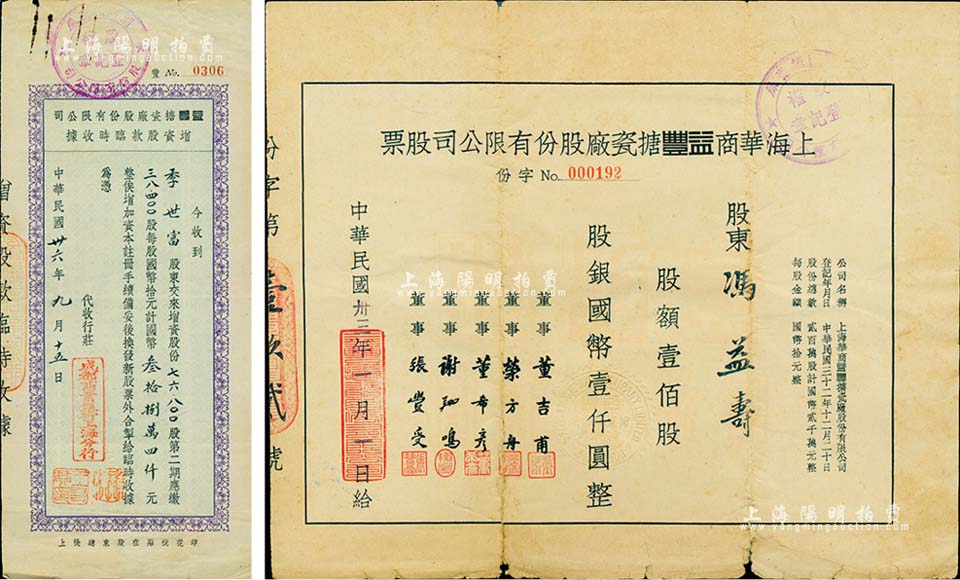 豐 No. 0306
益豐搪瓷廠股份有限公司
增資股款臨時收據
今收到
季世富 股東交來增資股份七六八〇〇股第二期應繳
三八四〇〇股每股國幣拾元計國幣 叁拾捌萬四仟 元
整俟增加資本註冊手續備妥後換發新股票外合掣給臨時收據
為憑
代收行莊
中華民國 卅六 年 九 月 十五 日
印花稅貼在股東總儀上
增資股款臨時收據
份字第
壹玖貳
號
上海華商益豐搪瓷廠股份有限公司股票
份字 No. 000192
公司名稱 上海華商益豐搪瓷廠股份有限公司
登記年月日 中華民國三十二年十二月二十日
股份總數 貳百萬股計國幣貳千萬元整
每股金額 國幣拾元整
股東 馮益壽
股額壹佰股
股銀國幣壹仟圓整
董事 董吉甫
董事 榮方舟
董事 董希彥
董事 謝翔鳴
董事 張豐受
中華民國卅三年一月一日給
上海陽明拍賣
www.yangmingauction.com
上海陽明拍賣
www.yangmingauction.com
上海陽明拍賣
www.yangmingauction.com